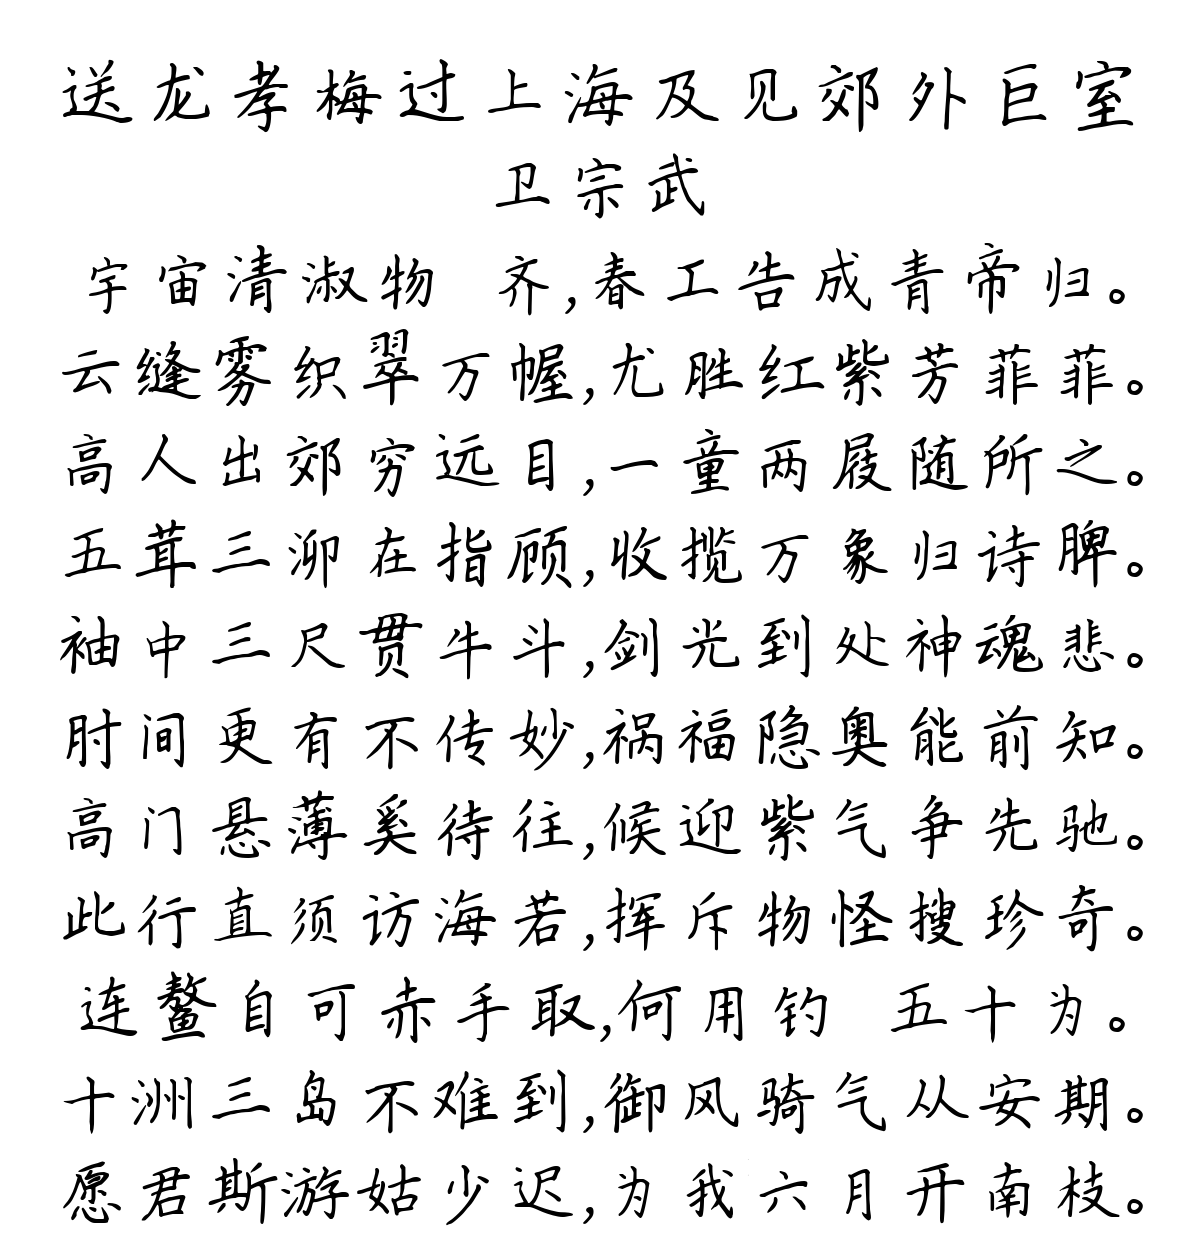 送龙孝梅过上海及见郊外巨室
卫宗武
宇宙清淑物 齐,春工告成青帝归。
云缝雾织翠万幄,尤胜红紫芳菲菲。
高人出郊穷远目,一童两屐随所之。
五茸三泖在指顾,收揽万象归诗脾。
袖中三尺贯牛斗,剑光到处神魂悲。
肘间更有不传妙,祸福隐奥能前知。
高门悬薄奚待往,候迎紫气争先驰。
此行直须访海若,挥斥物怪搜珍奇。
连鳌自可赤手取,何用钓 五十为。
十洲三岛不难到,御风骑气从安期。
愿君斯游姑少迟,为我六月开南枝。